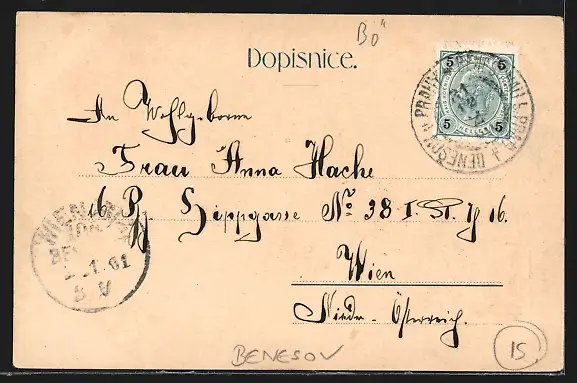 Bo"
Dopisnice.
5 5
5 5
HELLER
BENESOV U PRAHY
An Wohlgeborne
Frau Anna Hache
16 Bz. Hippgasse No 38 I. St. Th 16.
Wien
Nieder-Österreich.
WIEN
1.01
8 V
BENESOV
15